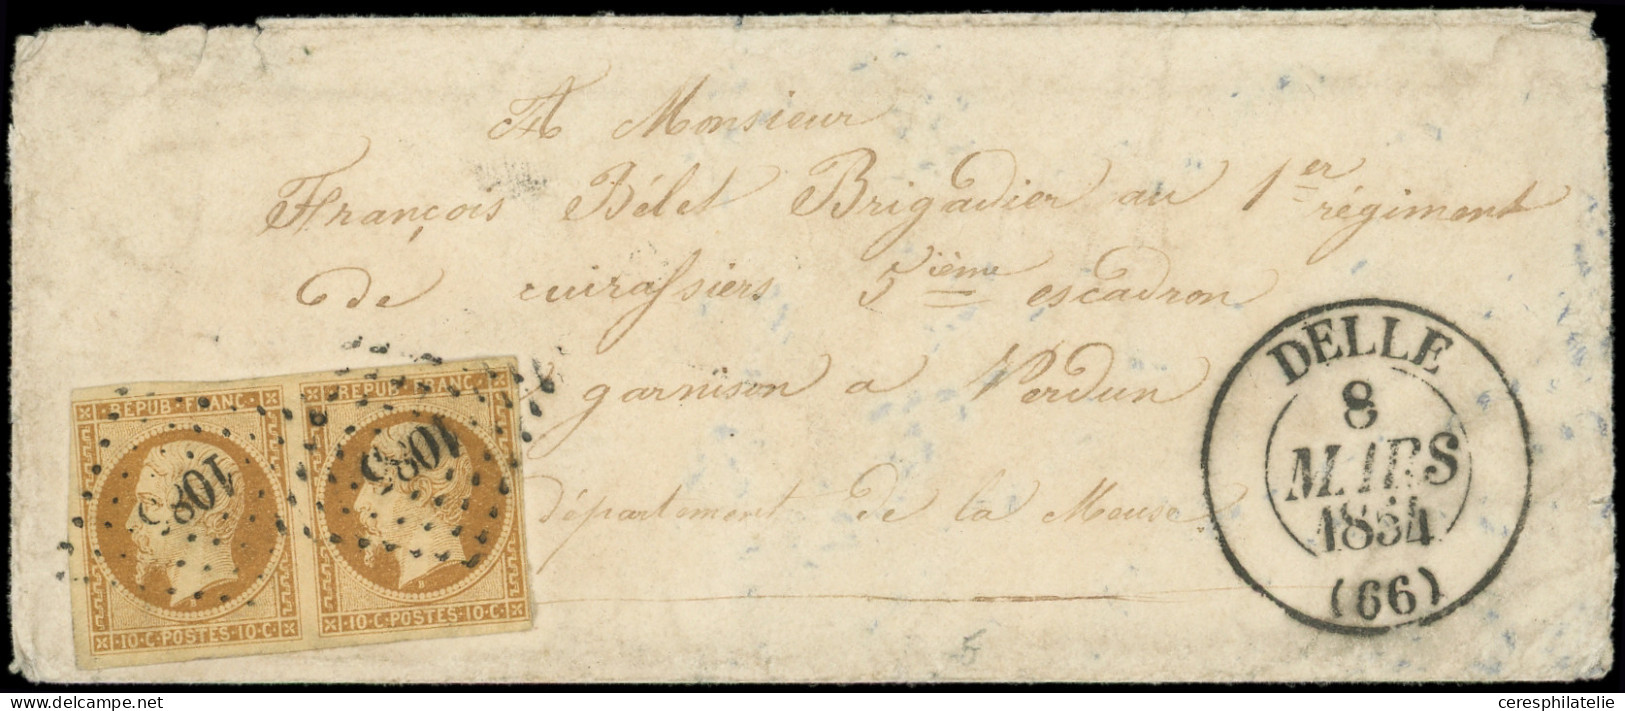 A Monsieur
François Bélet Brigadier au 1er régiment
de cuirassiers 5ième escadron
garnison a Verdun
département de la Meuse
REPUB·FRANC·
1085
·10·C·POSTES·10·C·
REPUB·FRANC·
1085
·10·C·POSTES·10·C·
DELLE
8
MARS
1854
(66)
ceresphilatelie